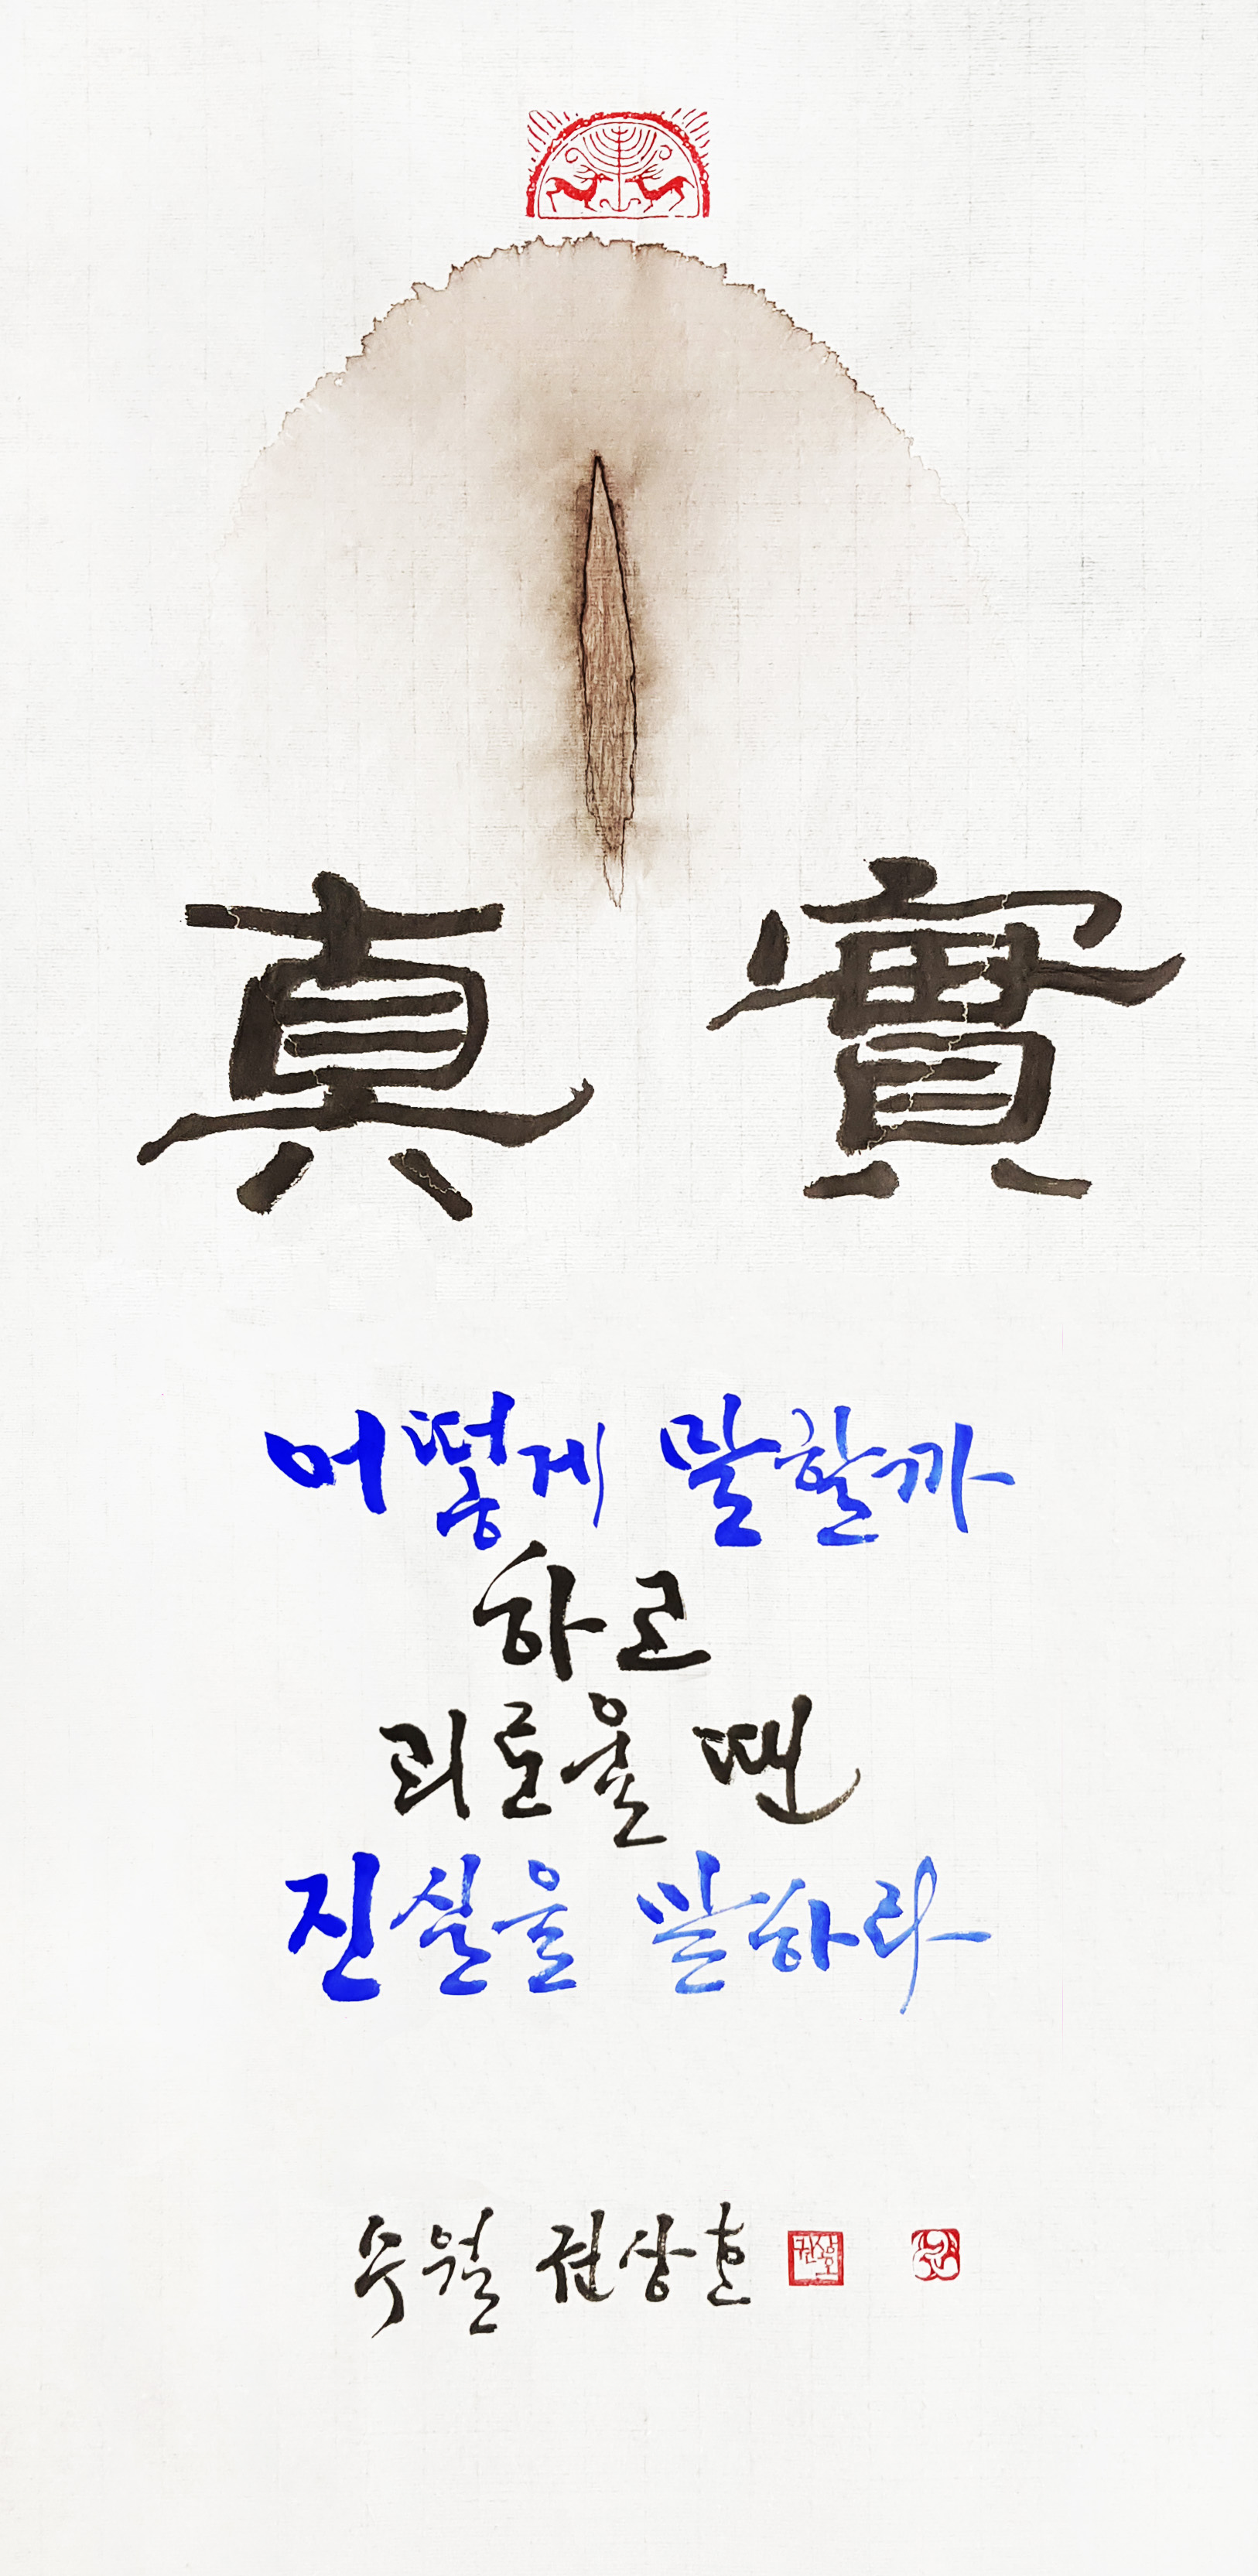 真實
어떻게 말할까
하고
괴로울 땐
진실을 말하라
수월 권상호
권상호